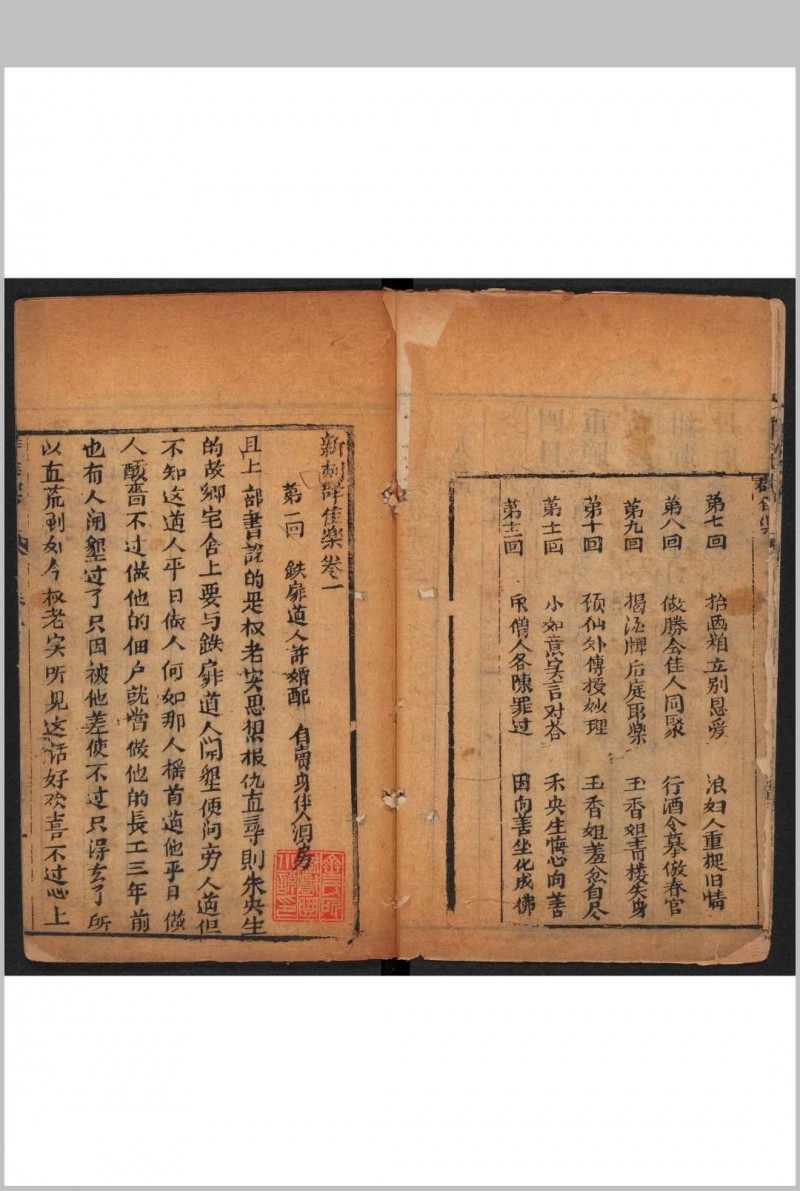 第七回 抬画箱立别恩爱 浪妇人重提旧情
第八回 做勝会佳人同聚 行酒令摹倣春官
第九回 揭淫牌后庭取樂 玉香姐青楼失身
第十回 顾仙外傳授妙理 玉香姐羞忿自尽
第十一回 小如意实言对荅 禾央生悔心向善
第十二回 吊僧人各陳罪过 因向善坐化成佛
新刻群佳樂卷一
第一回 鉄扉道人許婚配 自賣身作人洞房
且上部書說的是权老实思想报仇直尋到朱央生
的故鄉宅舍上要与鉄扉道人開墾便问旁人道但
不知这道人平日做人何如那人摇首道他平日做
人酸嗇不过做他的佃户就當做他的長工三年前
也有人開墾过了只因被他差使不过只得去了所
以直荒到如今权老实听见这话好欢喜不过心上